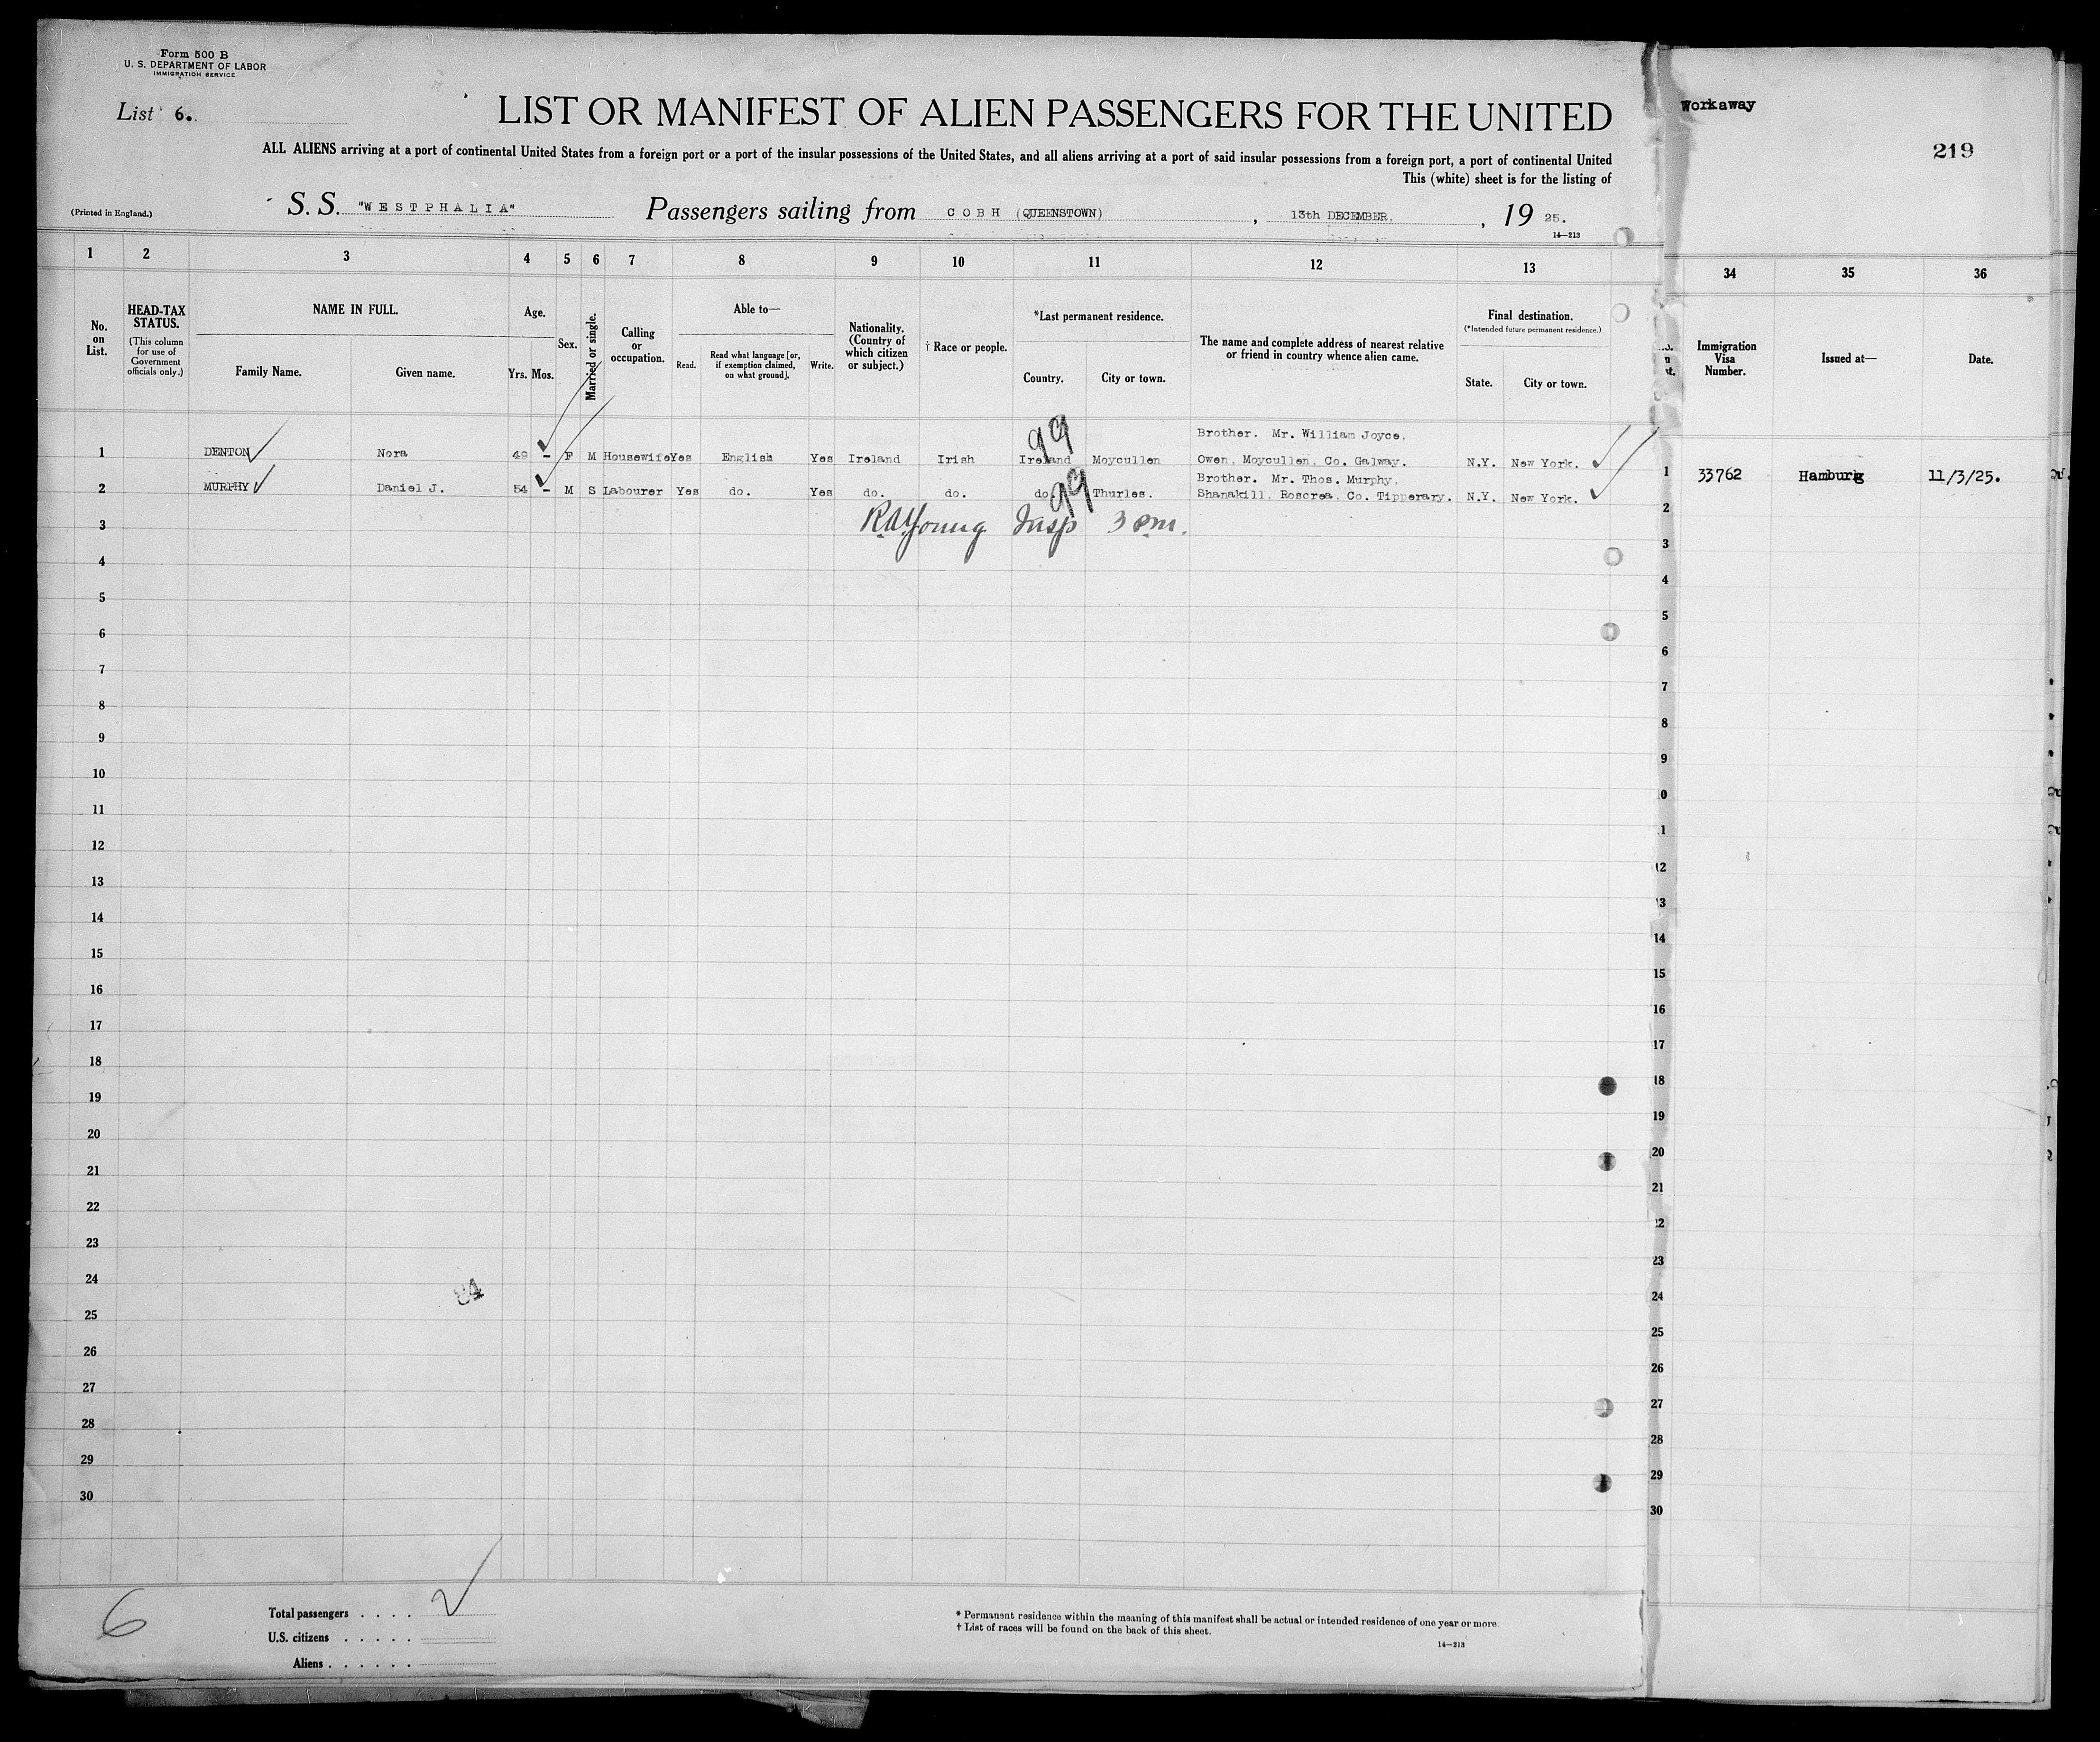 Form 500 B
U. S. DEPARTMENT OF LABOR
IMMIGRATION SERVICE
List 6.
LIST OR MANIFEST OF ALIEN PASSENGERS FOR THE UNITED
ALL ALIENS arriving at a port of continental United States from a foreign port or a port of the insular possessions of the United States, and all aliens arriving at a port of said insular possessions from a foreign port, a port of continental United
This (white) sheet is for the listing of
(Printed in England.)
S. S. "WESTPHALIA" Passengers sailing from COBH (QUEENSTOWN), 13th DECEMBER, 1925.
14—213
1 2 3 4 5 6 7 8 9 10 11 12 13
No. on List.
HEAD-TAX STATUS.
(This column for use of Government officials only.)
NAME IN FULL.
Family Name. Given name.
Age.
Yrs. Mos.
Sex.
Married or single.
Calling or occupation.
Able to—
Read. Read what language [or, if exemption claimed, on what ground]. Write.
Nationality. (Country of which citizen or subject.)
† Race or people.
*Last permanent residence.
Country. City or town.
The name and complete address of nearest relative or friend in country whence alien came.
Final destination.
(*Intended future permanent residence.)
State. City or town.
Brother. Mr. William Joyce,
1 DENTON Nora 49 – F M Housewife Yes English Yes Ireland Irish Ireland Moycullen Owen, Moycullen, Co. Galway. N.Y. New York.
99
Brother. Mr. Thos. Murphy,
2 MURPHY Daniel J. 54 – M S Labourer Yes do. Yes do. do. do. Thurles. Shanakill, Roscrea, Co. Tipperary. N.Y. New York.
99
3 RAYoung Insp 3 pm.
4
5
6
7
8
9
10
11
12
13
14
15
16
17
18
19
20
21
22
23
24
25
26
27
28
29
30
6
Total passengers . . . . 2
U.S. citizens . . . . .
Aliens . . . . . .
* Permanent residence within the meaning of this manifest shall be actual or intended residence of one year or more.
† List of races will be found on the back of this sheet.
14—213
Workaway
219
34 35 36
Immigration Visa Number.
Issued at—
Date.
1 33762 Hamburg 11/3/25.
2
3
4
5
6
7
8
9
0
1
12
13
14
15
16
17
18
19
20
21
22
23
24
25
26
27
28
29
30